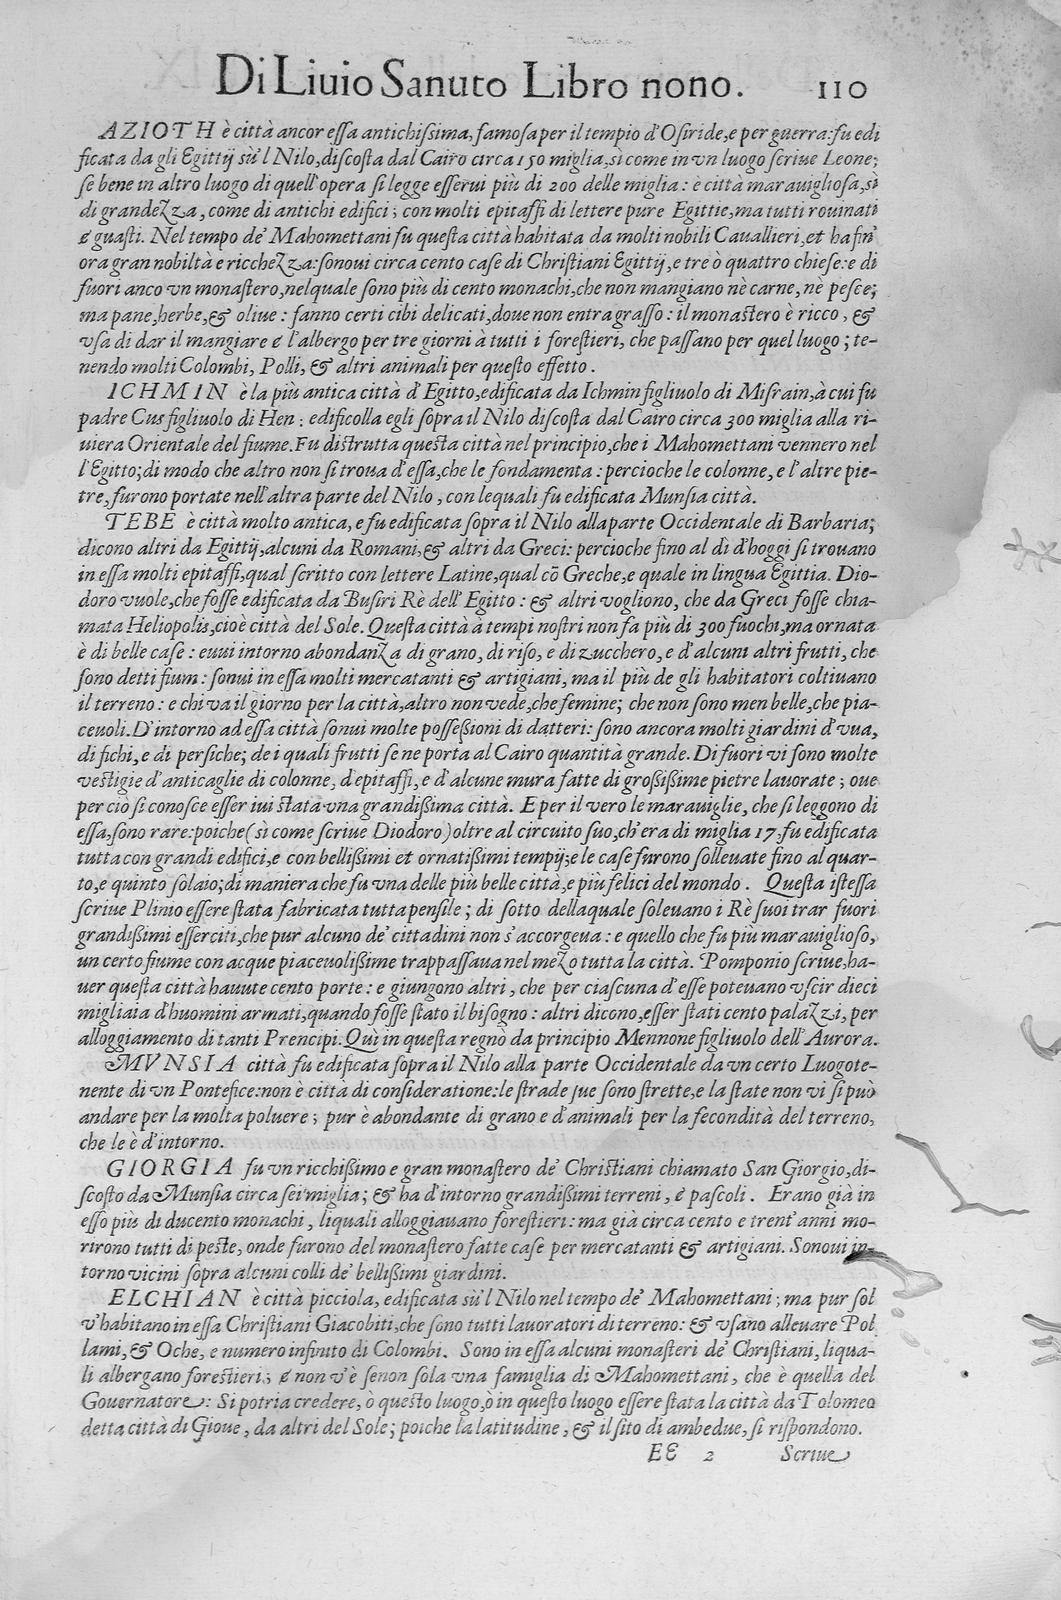 Di Liuio Sanuto Libro nono. 110
AZIOTH è città ancor essa antichissima, famosa per il tempio d'Osiride, e per guerra: fu edi
ficata da gli Egittij sù'l Nilo, discosta dal Cairo circa 150 miglia, sì come in vn luogo scriue Leone;
se bene in altro luogo di quell'opera si legge esserui più di 200 delle miglia: è città marauigliosa, sì
di grandezza, come di antichi edifici; con molti epitaffi di lettere pure Egittie, ma tutti rouinati
e guasti. Nel tempo de' Mahomettani fu questa città habitata da molti nobili Cauallieri, et ha fin'
ora gran nobiltà e ricchezza: sonoui circa cento case di Christiani Egittij, e tre ò quattro chiese: e di
fuori anco vn monastero, nel quale sono più di cento monachi, che non mangiano nè carne, nè pesce;
ma pane, herbe, & oliue: fanno certi cibi delicati, doue non entra grasso: il monastero è ricco, &
vsa di dar il mangiare e l'albergo per tre giorni à tutti i forestieri, che passano per quel luogo; te-
nendo molti Colombi, Polli, & altri animali per questo effetto.
ICHMIN è la più antica città d'Egitto, edificata da Ichmin figliuolo di Misrain, à cui fu
padre Cus figliuolo di Hen: edificolla egli sopra il Nilo discosta dal Cairo circa 300 miglia alla ri-
uiera Orientale del fiume. Fu distrutta questa città nel principio, che i Mahomettani vennero nel
l'Egitto; di modo che altro non si troua d'essa, che le fondamenta: percioche le colonne, e l'altre pie-
tre, furono portate nell'altra parte del Nilo, con lequali fu edificata Munsia città.
TEBE è città molto antica, e fu edificata sopra il Nilo alla parte Occidentale di Barbaria;
dicono altri da Egittij, alcuni da Romani, & altri da Greci: percioche fino al dì d'hoggi si trouano
in essa molti epitaffi, qual scritto con lettere Latine, qual cō Greche, e quale in lingua Egittia. Dio-
doro vuole, che fosse edificata da Busiri Rè dell'Egitto: & altri vogliono, che da Greci fosse chia-
mata Heliopolis, cioè città del Sole. Questa città à tempi nostri non fa più di 300 fuochi, ma ornata
è di belle case: euui intorno abondanza di grano, di riso, e di zucchero, e d'alcuni altri frutti, che
sono detti fium: sonui in essa molti mercatanti & artigiani, ma il più de gli habitatori coltiuano
il terreno: e chi va il giorno per la città, altro non vede, che femine; che non sono men belle, che pia-
ceuoli. D'intorno ad essa città sonui molte possessioni di datteri: sono ancora molti giardini d'vua,
di fichi, e di persiche; de i quali frutti se ne porta al Cairo quantità grande. Di fuori vi sono molte
vestigie d'anticaglie di colonne, d'epitaffi, e d'alcune mura fatte di grossissime pietre lauorate; oue
per ciò si conosce esser iui stata vna grandissima città. E per il vero le marauiglie, che si leggono di
essa, sono rare: poiche (sì come scriue Diodoro) oltre al circuito suo, ch'era di miglia 17, fu edificata
tutta con grandi edifici, e con bellissimi et ornatissimi tempij; e le case furono solleuate fino al quar-
to, e quinto solaio; di maniera che fu vna delle più belle città, e più felici del mondo. Questa istessa
scriue Plinio essere stata fabricata tutta pensile; di sotto della quale soleuano i Rè suoi trar fuori
grandissimi esserciti, che pur alcuno de' cittadini non s'accorgeua: e quello che fu più marauiglioso,
un certo fiume con acque piaceuolissime trappassaua nel mezo tutta la città. Pomponio scriue, ha-
uer questa città hauute cento porte: e giungono altri, che per ciascuna d'esse poteuano vscir dieci
migliaia d'huomini armati, quando fosse stato il bisogno: altri dicono, esser stati cento palazzi, per
alloggiamento di tanti Prencipi. Quì in questa regnò da principio Mennone figliuolo dell'Aurora.
MVNSIA città fu edificata sopra il Nilo alla parte Occidentale da vn certo Luogote-
nente di vn Pontefice: non è città di consideratione: le strade sue sono strette, e la state non vi si può
andare per la molta poluere; pur è abondante di grano e d'animali per la fecondità del terreno,
che le è d'intorno.
GIORGIA fu vn ricchissimo e gran monastero de' Christiani chiamato San Giorgio, di-
scosto da Munsia circa sei miglia; & ha d'intorno grandissimi terreni, e pascoli. Erano già in
esso più di ducento monachi, liquali alloggiauano forestieri: ma già circa cento e trent'anni mo-
rirono tutti di peste, onde furono del monastero fatte case per mercatanti & artigiani. Sonoui in-
torno vicini sopra alcuni colli de' bellissimi giardini.
ELCHIAN è città picciola, edificata sù'l Nilo nel tempo de' Mahomettani; ma pur sol
v'habitano in essa Christiani Giacobiti, che sono tutti lauoratori di terreno: & vsano alleuare Pol
lami, & Oche, e numero infinito di Colombi. Sono in essa alcuni monasteri de' Christiani, liqua-
li albergano forestieri; e non v'è senon sola vna famiglia di Mahomettani, che è quella del
Gouernatore: Si potria credere, ò questo luogo, ò in questo luogo essere stata la città da Tolomeo
detta città di Gioue, da altri del Sole; poiche la latitudine, & il sito di ambedue, si rispondono.
EE 2 Scriue